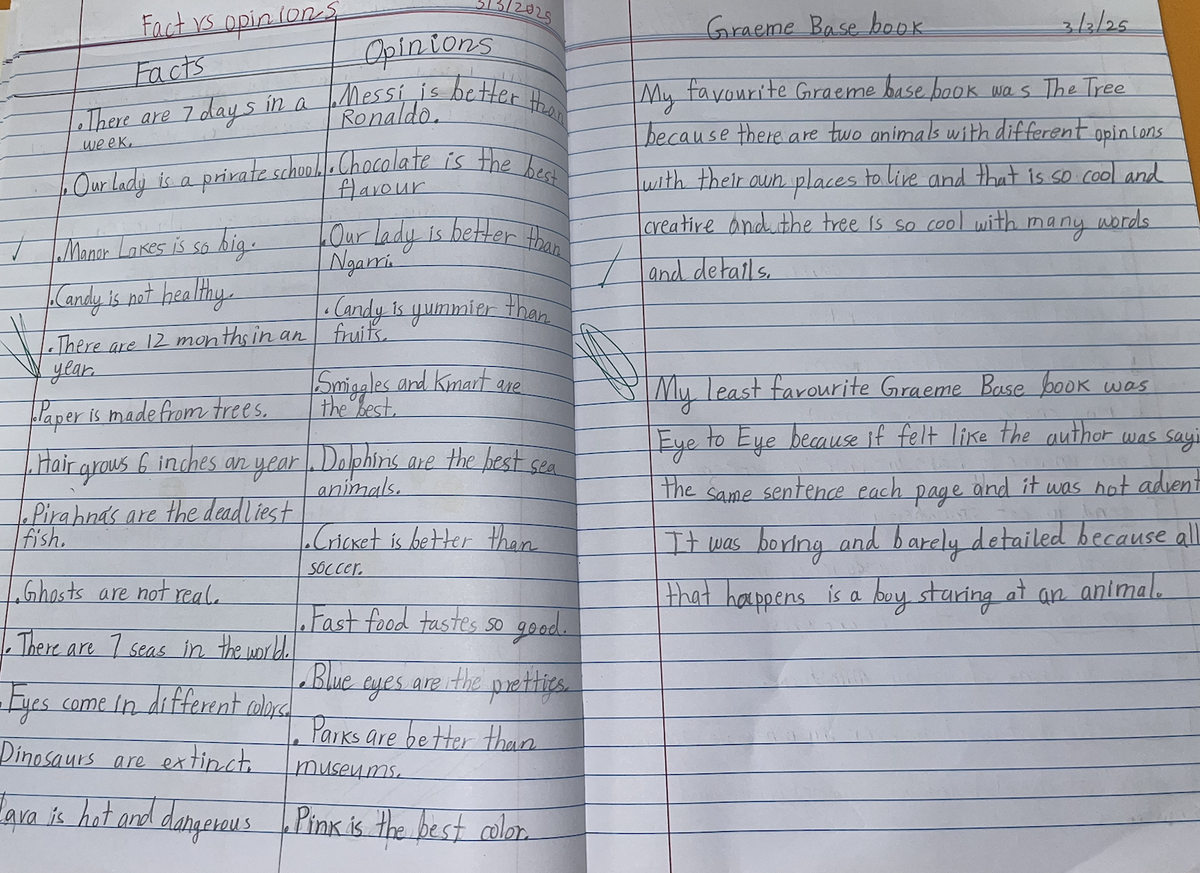 Fact vs opinions
3/3/2025
Facts
• There are 7 days in a
week.
• Our lady is a private school.
• Manor Lakes is so big.
• Candy is not healthy.
• There are 12 months in an
year.
• Paper is made from trees.
• Hair grows 6 inches an year
• Pirahna's are the deadliest
fish.
• Ghosts are not real.
• There are 7 seas in the world.
Eyes come in different colors.
Dinosaurs are extinct.
Lava is hot and dangerous
Opinions
• Messi is better than
Ronaldo.
• Chocolate is the best
flavour
• Our lady is better than
Ngarri.
• Candy is yummier than
fruits.
• Smiggles and Kmart are
the best.
• Dolphins are the best sea
animals.
• Cricket is better than
soccer.
• Fast food tastes so good.
• Blue eyes are the pretties.
• Parks are better than
museums.
• Pink is the best color.
Graeme Base book
3/3/25
My favourite Graeme base book was The Tree
because there are two animals with different opinions
with their own places to live and that is so cool and
creative and the tree is so cool with many words
and details.
My least favourite Graeme Base book was
Eye to Eye because if felt like the author was sayi
the same sentence each page and it was not advent
It was boring and barely detailed because all
that happens is a boy staring at an animal.